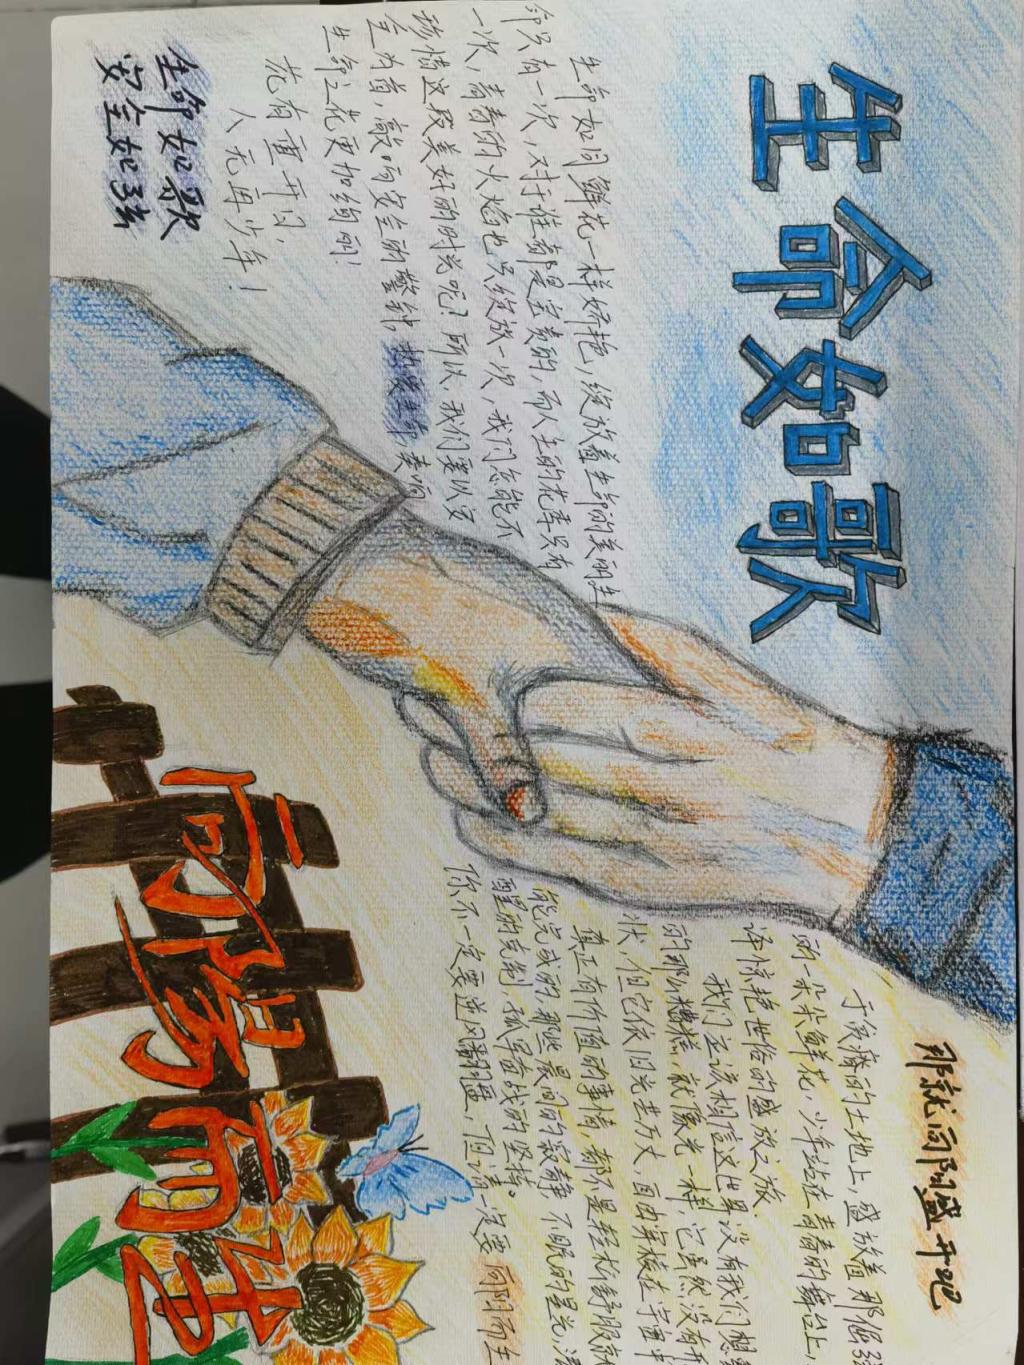 生命如歌
生命如同鲜花一样娇艳,绽放着生命的美丽,生
命只有一次,对于谁都是宝贵的,而人生的花季只有
一次,青春的火焰也只绽放一次,我们怎能不
珍惜这段美好的时光呢?所以,我们要以安
全为首,敲响安全的警钟 热爱生命 奏响
生命之花更加绚丽!
花有重开日,
人无再少年!
生命如歌
安全如弦
那就向阳盛开吧
于贫瘠的土地上,盛放着那倔强
的一朵朵鲜花,少年站在青春的舞台上,
译惊艳世俗的盛放之旅
我们应该相信这世界没有我们想象
的那么糟糕,就像光一样,它虽然没有形
状,但它依旧光芒万丈,自由穿梭在宇宙中
真正有价值的事情,都不是轻松舒服就
能完成的,那些最闷的寂静,不眠的星光,清
醒的克制,孤导自找的坚持。
你不一定要逆风翻盘,但请一定要 向阳而生
向阳而生